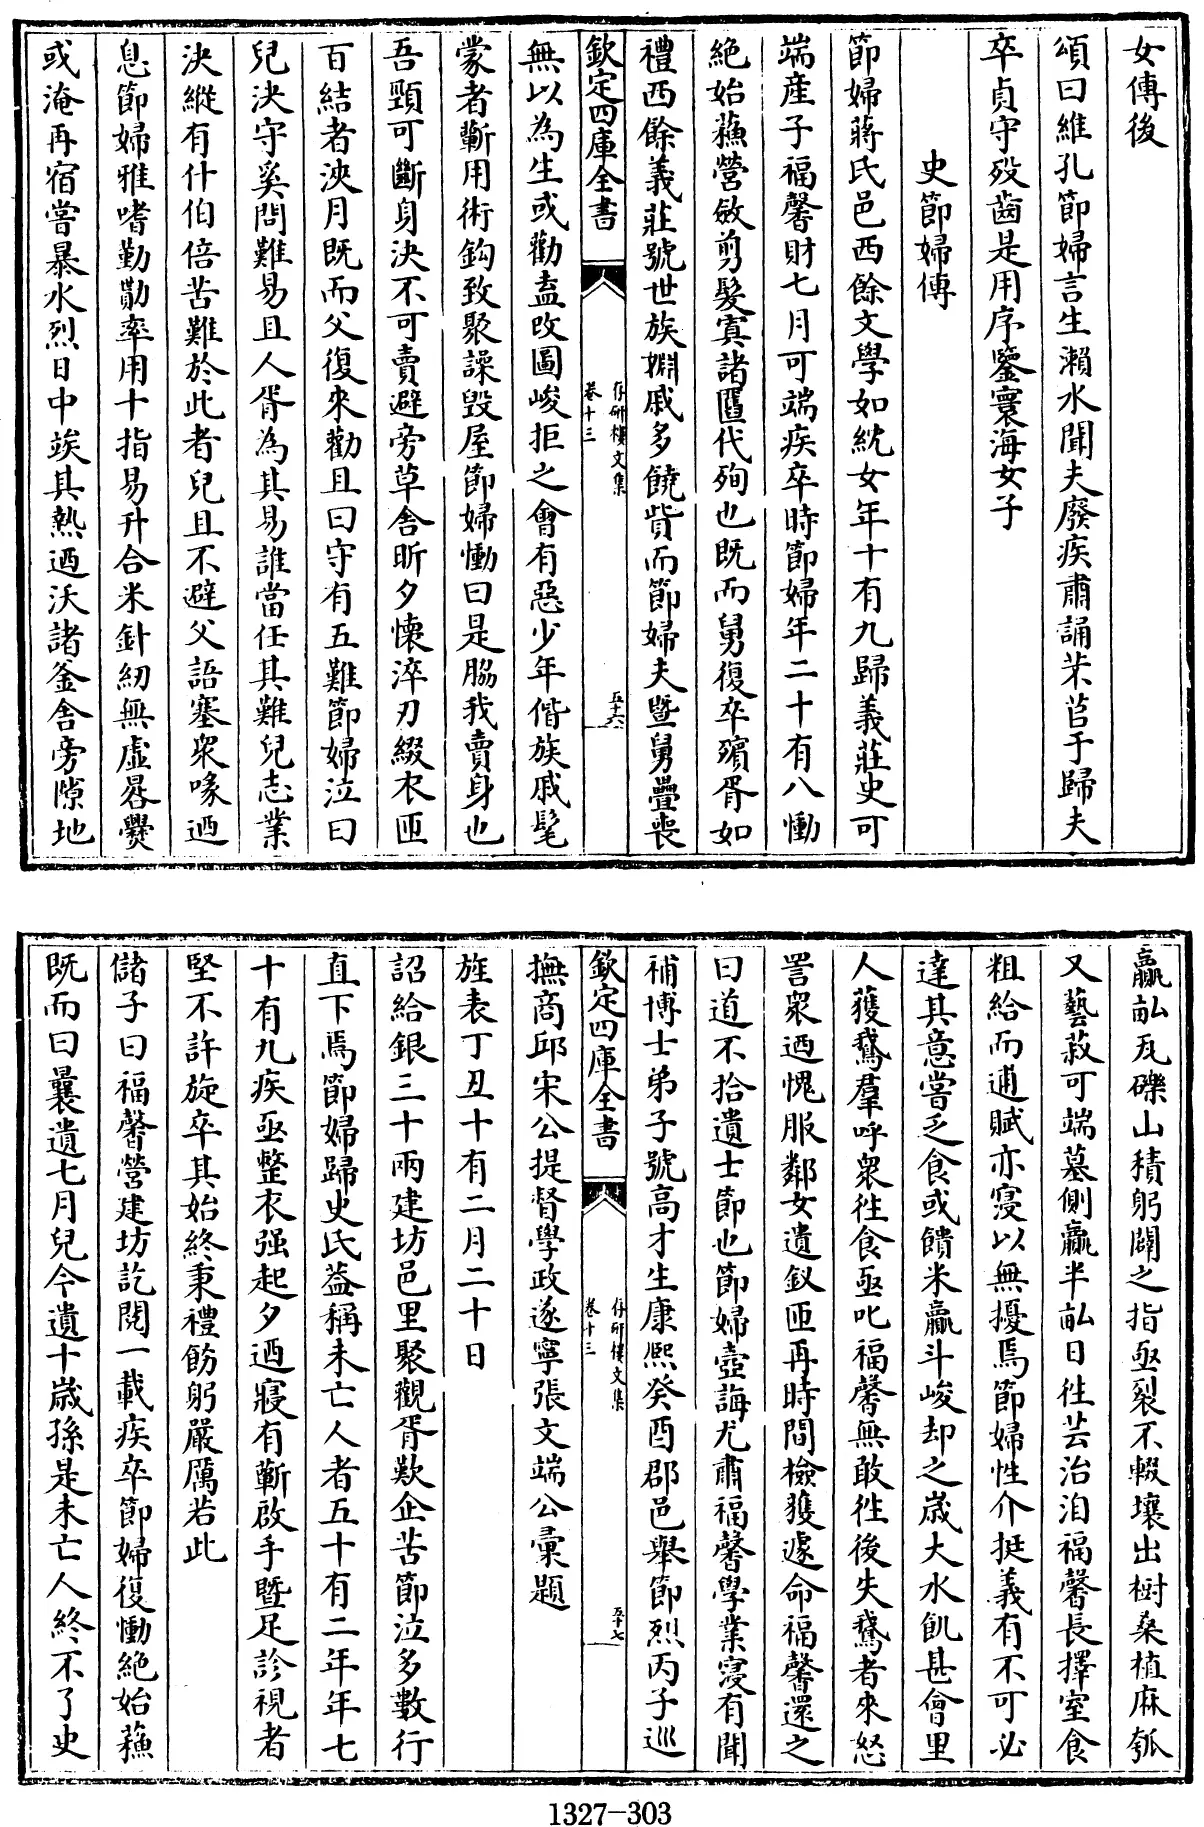 女傳後
頌曰維孔節婦言生瀨水聞夫廢疾肅誦芣苢于歸夫
卒貞守歿齒是用序鑒寰海女子
史節婦傳
節婦蔣氏邑西餘文學如紞女年十有九歸義莊史可
端產子福馨財七月可端疾卒時節婦年二十有八慟
絶始蘓營斂剪髮寘諸匶代殉也既而舅復卒殯胥如
禮西餘義莊號世族婣戚多饒貲而節婦夫暨舅疊喪
欽定四庫全書
存研樓文集
卷十三
五十六
無以為生或勸盍改圖峻拒之會有惡少年偕族戚髦
蒙者蘄用術鈎致聚譟毁屋節婦慟曰是脇我賣身也
吾頸可斷身決不可賣避旁草舍昕夕懷淬刃綴衣匝
百結者浹月既而父復來勸且曰守有五難節婦泣曰
兒決守奚問難易且人胥為其易誰當任其難兒志業
決縱有什伯倍苦難於此者兒且不避父語塞衆喙迺
息節婦雅嗜勤勩率用十指易升合米針紉無虛晷爨
或淹再宿嘗暴水烈日中竢其熱迺沃諸釜舍旁隙地
贏畝瓦礫山積躬闢之指亟裂不輟壤出樹桑植麻瓠
又藝菽可端墓側贏半畝日徃芸治洎福馨長擇室食
粗給而逋賦亦寖以無擾焉節婦性介挺義有不可必
達其意嘗乏食或饋米贏斗峻却之歲大水飢甚會里
人獲鵞羣呼衆徃食亟叱福馨無敢徃後失鵞者來怒
詈衆迺愧服鄰女遺釵匝再時間檢獲遽命福馨還之
曰道不拾遺士節也節婦壼誨尤肅福馨學業寖有聞
補博士弟子號高才生康熈癸酉郡邑舉節烈丙子巡
欽定四庫全書
存研樓文集
卷十三
五十七
撫商邱宋公提督學政遂寧張文端公彚題
旌表丁丑十有二月二十日
詔給銀三十兩建坊邑里聚觀胥歎企苦節泣多數行
直下焉節婦歸史氏葢稱未亡人者五十有二年年七
十有九疾亟整衣强起夕迺寢有蘄啟手暨足診視者
堅不許旋卒其始終秉禮飭躬嚴厲若此
儲子曰福馨營建坊訖閱一載疾卒節婦復慟絶始蘓
既而曰曩遺七月兒今遺十歲孫是未亡人終不了史
1327-303